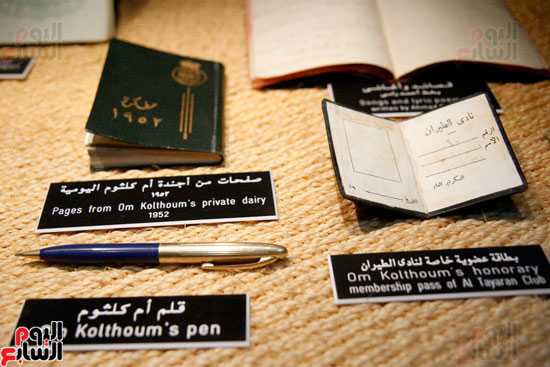 مفكرة
١٩٥٢
قصائد وأغاني
بخط أحمد رامى
Songs and lyric poem
written by Ahmed
نادى الطيران
الرقم
الأسم
السكرتير العام
صفحات من أجندة أم كلثوم اليومية
١٩٥٢
Pages from Om Kolthoum's private dairy
1952
بطاقة عضوية خاصة لنادى الطيران
Om Kolthoum's honorary
membership pass of Al Tayaran Club
قلم أم كلثوم
Kolthoum's pen
اليوم السابع